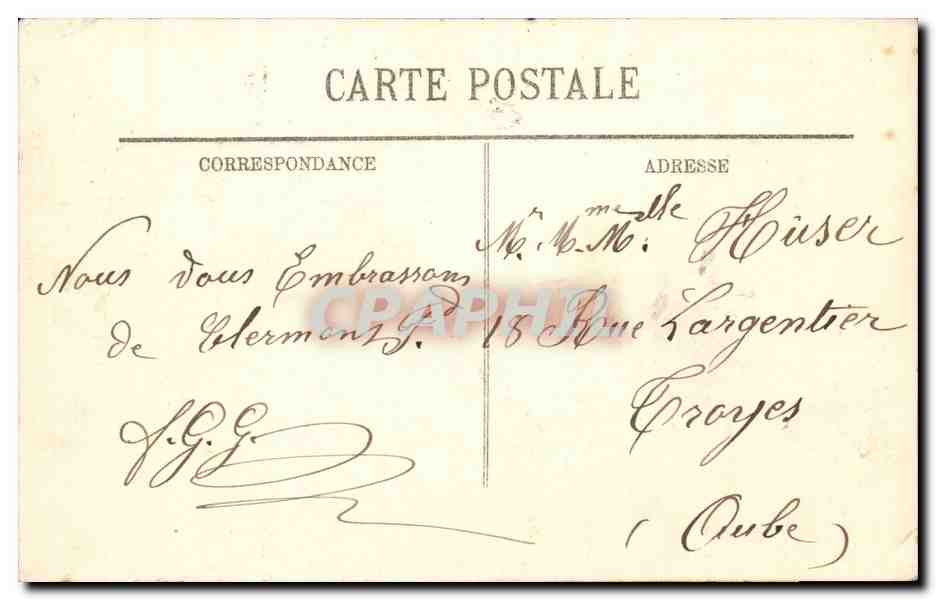 CARTE POSTALE
CORRESPONDANCE
Nous vous Embrassons
de Clermont Fd
S. G. G.
ADRESSE
Mr. Mme Melle Hüser
18 Rue Largentier
Troyes
(Aube)
CPAPHIL